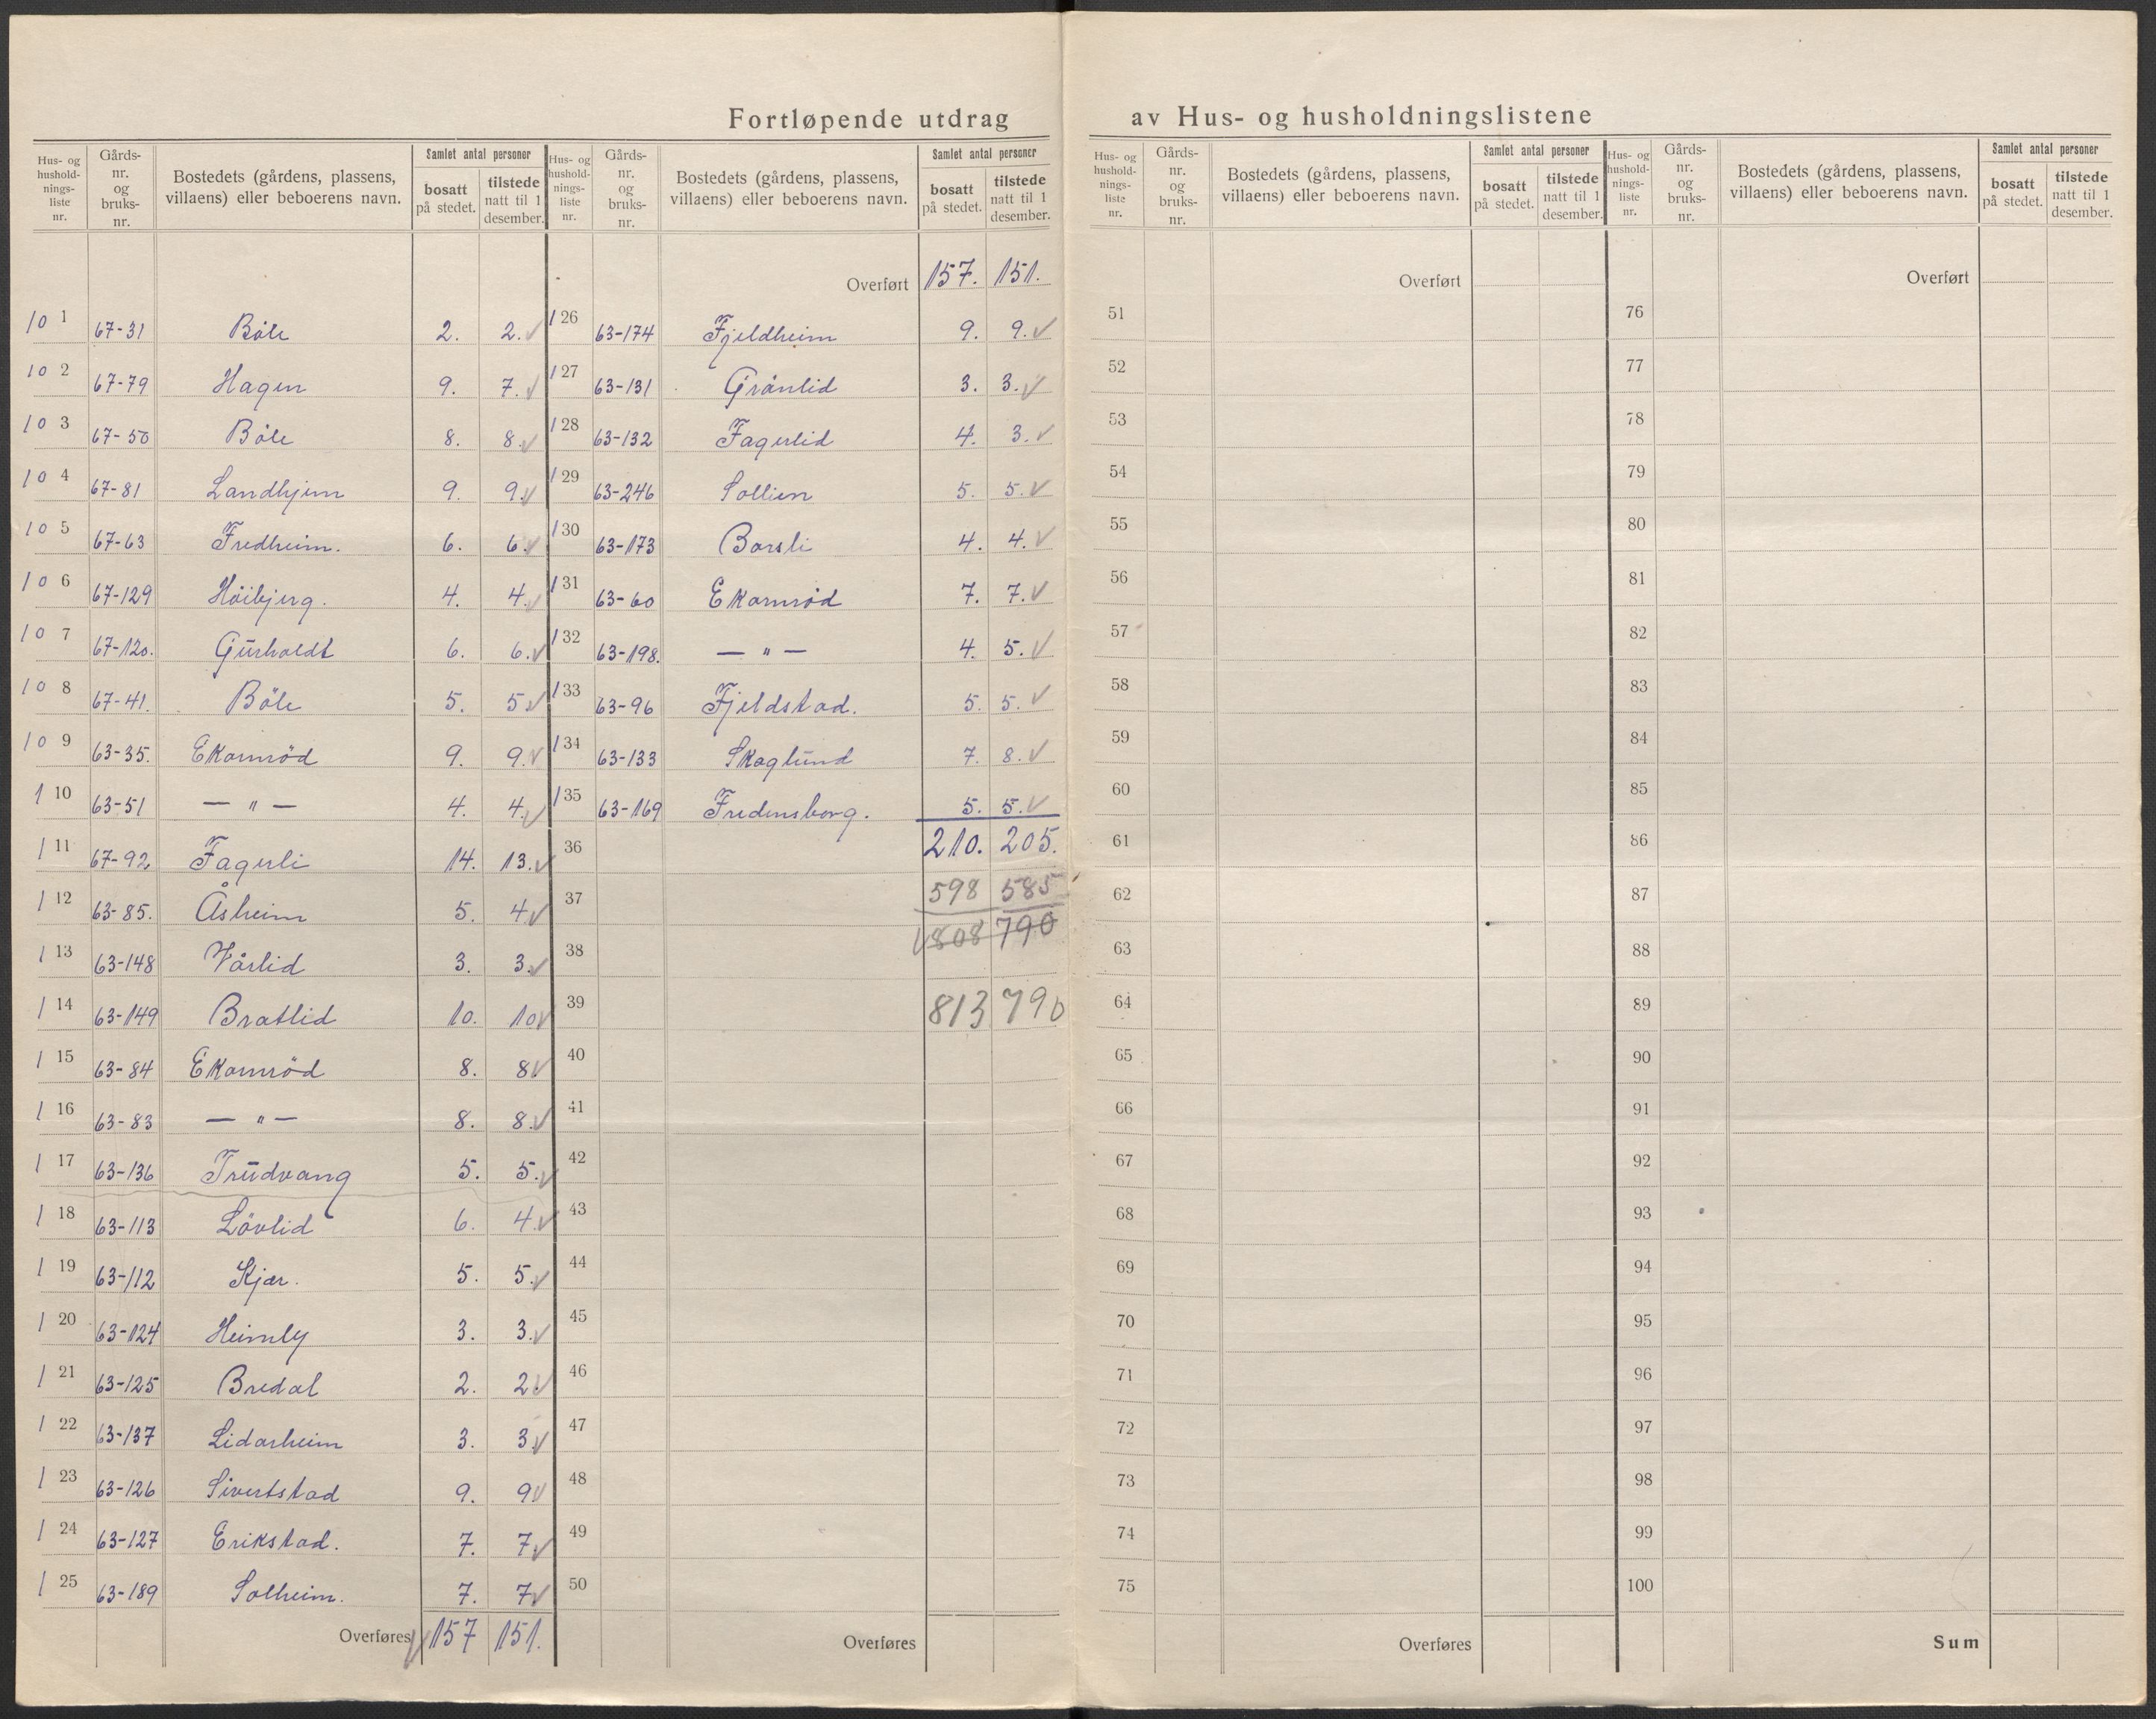 Fortløpende utdrag av Hus- og husholdningslistene
Hus- og husholdnings-liste nr. | Gårds-nr. og bruks-nr. | Bostedets (gårdens, plassens, villaens) eller beboerens navn. | Samlet antal personer | bosatt på stedet. | tilstede natt til 1 desember.
10 1 67-31 Böle 2. 2. ✓
10 2 67-79 Hagen 9. 7. ✓
10 3 67-50 Böle 8. 8. ✓
10 4 67-81 Landhjem 9. 9. ✓
10 5 67-63 Fredheim. 6. 6. ✓
10 6 67-129 Höibjerg. 4. 4. ✓
10 7 67-120. Gurholdt 6. 6. ✓
10 8 67-41. Böle 5. 5. ✓
10 9 63-35. Ekornröd 9. 9. ✓
1 10 63-51 — " — 4. 4. ✓
1 11 67-92 Fagerli 14. 13. ✓
1 12 63-85. Åsheim 5. 4. ✓
1 13 63-148 Vårlid 3. 3. ✓
1 14 63-149 Bratlid 10. 10 ✓
1 15 63-84 Ekornröd 8. 8 ✓
1 16 63-83 — " — 8. 8. ✓
1 17 63-136 Trudvang 5. 5. ✓
1 18 63-113 Lövlid 6. 4. ✓
1 19 63-112 Kjær. 5. 5. ✓
1 20 63-124 Heimly 3. 3. ✓
1 21 63-125 Bredal 2. 2. ✓
1 22 63-137 Lidarheim 3. 3. ✓
1 23 63-126 Sivertstad 9. 9 ✓
1 24 63-127 Erikstad. 7. 7. ✓
1 25 63-189 Solheim. 7. 7 ✓
Overføres ✓ 157 151.
Hus- og husholdnings-liste nr. | Gårds-nr. og bruks-nr. | Bostedets (gårdens, plassens, villaens) eller beboerens navn. | Samlet antal personer | bosatt på stedet. | tilstede natt til 1 desember.
Overført 157. 151.
1 26 63-174 Fjeldheim 9. 9. ✓
1 27 63-131 Grönlid 3. 3. ✓
1 28 63-132 Fagerlid 4. 3. ✓
1 29 63-246 Sollien 5. 5. ✓
1 30 63-173 Borsli 4. 4. ✓
1 31 63-60 Ekornröd 7. 7. ✓
1 32 63-198. — " — 4. 5. ✓
1 33 63-96 Fjeldstad. 5. 5. ✓
1 34 63-133 Skoglund 7. 8. ✓
1 35 63-169 Fredensborg. 5. 5. ✓
36 210. 205.
37 598 585
38 ✓ 808 790
39 813 790
40
41
42
43
44
45
46
47
48
49
50
Overføres
Hus- og husholdnings-liste nr. | Gårds-nr. og bruks-nr. | Bostedets (gårdens, plassens, villaens) eller beboerens navn. | Samlet antal personer | bosatt på stedet. | tilstede natt til 1 desember.
Overført
51
52
53
54
55
56
57
58
59
60
61
62
63
64
65
66
67
68
69
70
71
72
73
74
75
Overføres
Hus- og husholdnings-liste nr. | Gårds-nr. og bruks-nr. | Bostedets (gårdens, plassens, villaens) eller beboerens navn. | Samlet antal personer | bosatt på stedet. | tilstede natt til 1 desember.
Overført
76
77
78
79
80
81
82
83
84
85
86
87
88
89
90
91
92
93
94
95
96
97
98
99
100
Sum